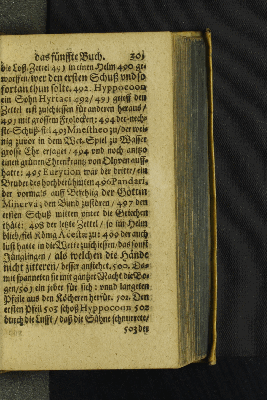 das fünffte Buch. 303
die Loß-Zettel 491 in einen Helm 490 ge-
worffen/wer den ersten Schuß vnd so
fortan thun solte. 492. Hyppocoon
ein Sohn Hyrtaci 492/493 grieff den
Zettel mit zuschiessen für anderen heraus/
493 mit grossem Frolocken: 494 der nech-
ste Schuß fiel 493 Mnestheo zu/der wei-
nig zuvor in dem Wet-Spiel zu Wasser
grosse Ehr erjaget/494 vnd noch anitzo
einen grünen Ehrenkrantz von Olyven auff-
hatte: 495 Eurytion war der dritte/ein
Bruder des hochberühmten 496 Pandari,
der vormals auff Befehlig der Göttin
Minervæ den Bund zustören/497 den
ersten Schuß mitten vnter die Griechen
thäte: 498 der letzte Zettel/so im Helm
blieb/fiel König Acestæ zu: 499 der auch
lust hatte in die Wette zuschiessen/das sonst
Jünglingen/als welchen die Hände
nicht zitteren/besser anstehet. 500. Da-
mit spanneten sie mit gantzer Macht die Bo-
gen/501 ein jeder für sich: vnnd langeten
Pfeile aus den Köcheren herfür. 502 Den
ersten Pfeil 503 schoß Hyppocoon 502
durch die Lufft/daß die Sähne schnurrete/
503 der